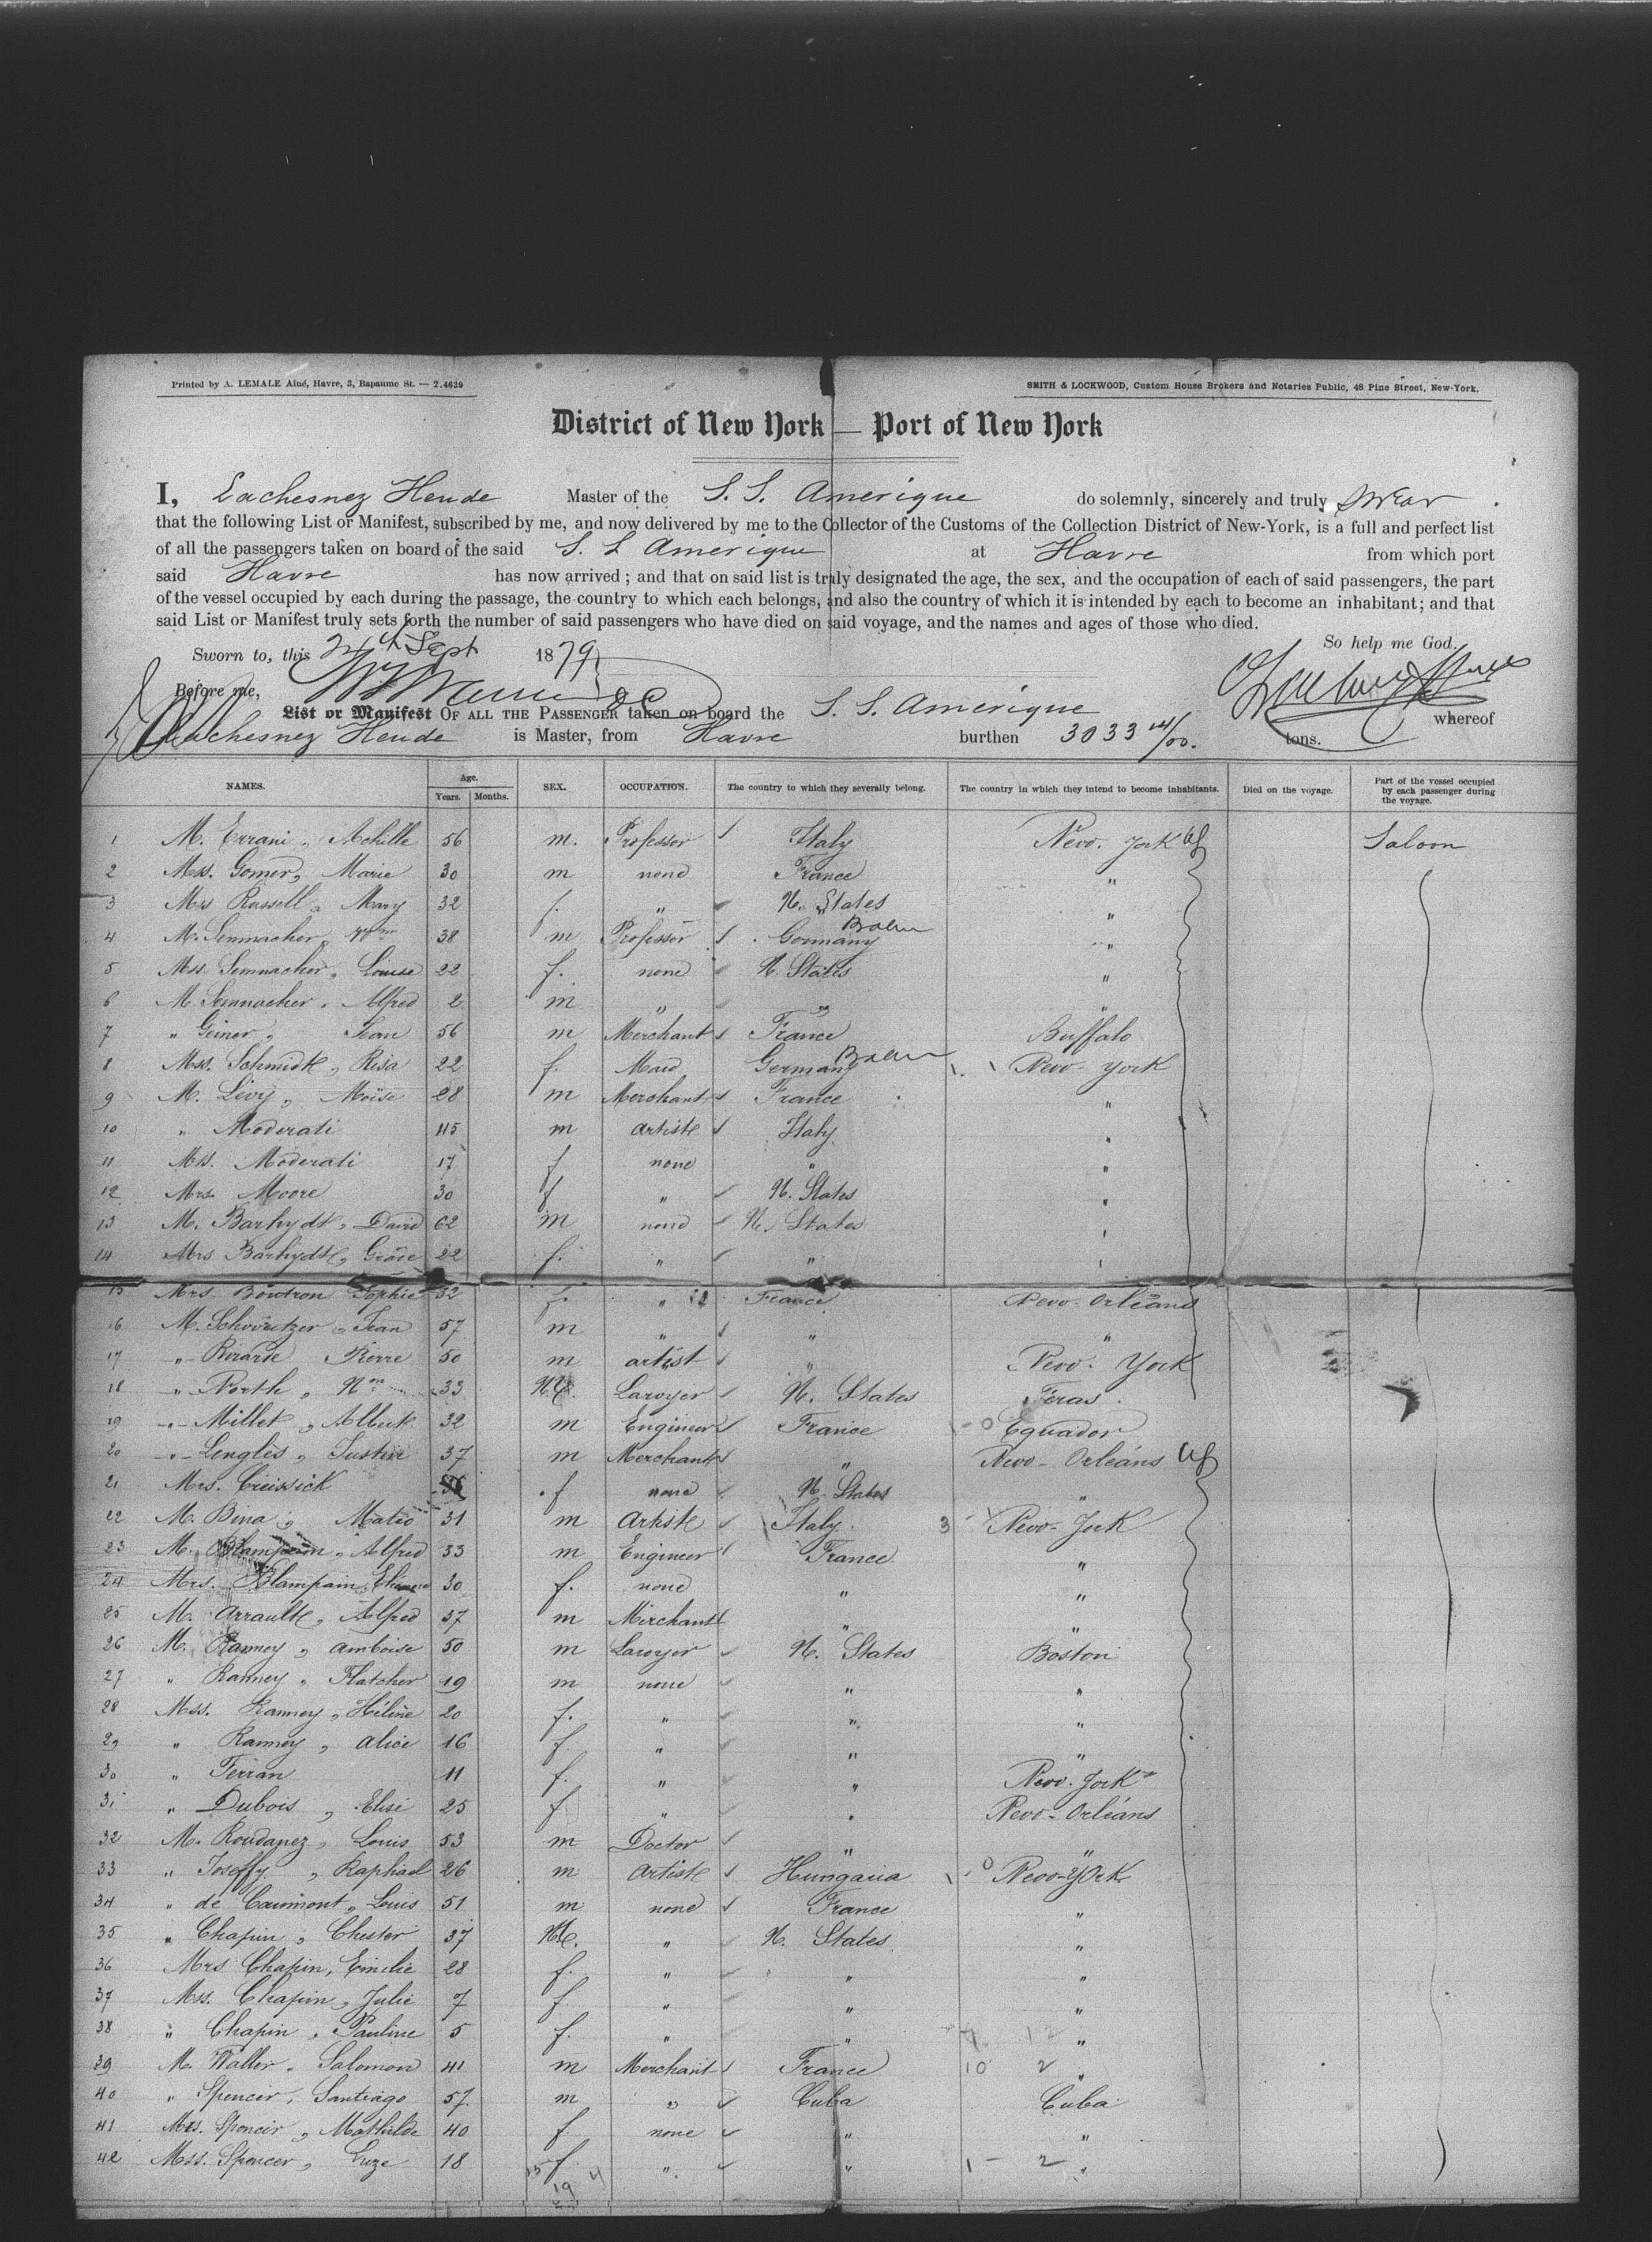 Printed by A. LEMALE Aîné, Havre, 3, Bapaume St. — 2.4639
SMITH & LOCKWOOD, Custom House Brokers and Notaries Public, 48 Pine Street, New-York.
District of New York — Port of New York
I, Lachesnez Heude Master of the S. S. Amerique do solemnly, sincerely and truly swear
that the following List or Manifest, subscribed by me, and now delivered by me to the Collector of the Customs of the Collection District of New-York, is a full and perfect list
of all the passengers taken on board of the said S. S. Amerique at Havre from which port
said Havre has now arrived; and that on said list is truly designated the age, the sex, and the occupation of each of said passengers, the part
of the vessel occupied by each during the passage, the country to which each belongs, and also the country of which it is intended by each to become an inhabitant; and that
said List or Manifest truly sets forth the number of said passengers who have died on said voyage, and the names and ages of those who died.
So help me God.
Sworn to, this 24th Sept 1879
Before me,
List or Manifest OF ALL THE PASSENGER taken on board the S. S. Amerique whereof
Lachesnez Heude is Master, from Havre burthen 3033 14/00. tons.
NAMES. Age. Years. Months. SEX. OCCUPATION. The country to which they severally belong. The country in which they intend to become inhabitants. Died on the voyage. Part of the vessel occupied by each passenger during the voyage.
1 M. Errani, Achille 56 m. Professor Italy New. York Saloon
2 Mss. Gomer, Marie 30 m none France "
3 Mrs Russell, Mary 32 f. " U. States "
4 M. Semnacher, Wm 38 m Professor Germany "
5 Mss. Semnacher, Louise 22 f. none U. States "
6 M. Semnacher, Alfred 2 m " " "
7 " Geiner, Jean 56 m Merchant France Buffalo
8 Mss. Schmidt, Risa 22 f. Maid Germany New-York
9 M. Lévy, Moïse 28 m Merchant France "
10 " Moderati 45 m artiste Italy "
11 Mss. Moderati 17 f none " "
12 Mrs. Moore 30 f " U. States "
13 M. Barhydt, David 62 m none U. States "
14 Mrs Barhydt, Grâce 22 f. " " "
15 Mrs. Bowtron Sophie 32 f. " France New-Orléans
16 M. Schweitzer, Jean 57 m " " "
17 " Rivarde Pierre 50 m artist " New. York
18 " North, Wm 33 M. Lawyer U. States Texas.
19 " Millet, Albert 32 m Engineer France Equador
20 " Lenglès, Justin 37 m Merchant " New-Orléans
21 Mrs. Creissick f none U. States "
22 M. Bina, Matéo 31 m Artiste Italy. 3 New-York
23 M. Blampain, Alfred 33 m Engineer France "
24 Mrs. Blampain, 30 f. none " "
25 M. Arrault, Alfred 37 m Merchant " "
26 M. Ranney, Amboise 50 m Lawyer U. States Boston
27 " Ranney, Flatcher 19 m none " "
28 Mss. Ranney, Hélène 20 f. " " "
29 " Ranney, Alice 16 f. " " "
30 " Ferran 11 f. " " New. York
31 " Dubois, Elise 25 f " " New-Orléans
32 M. Roudanez, Louis 53 m Doctor " "
33 " Joseffy, Raphael 26 m artiste Hungaria New-York
34 " de Caumont, Louis 51 m none France "
35 " Chapin, Chester 37 M. " U. States "
36 Mrs Chapin, Emilie 28 f. " " "
37 Mss. Chapin, Julie 7 f. " " "
38 " Chapin, Pauline 5 f. " " "
39 M. Waller, Salomon 41 m Merchant France 10 2 "
40 " Spencer, Santiago 57 m " Cuba Cuba
41 Mrs. Spencer, Mathilde 40 f none " "
42 Mss. Spencer, Luze 18 f. " " 1 - 2 "
19